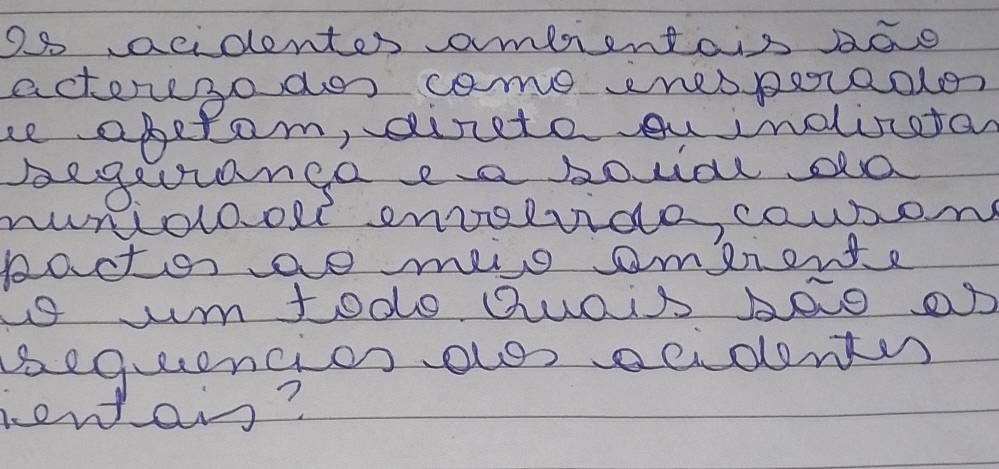 Os acidentes ambientais são
acterizados como inesperados
e afetam, direta ou indiretam
segurança e a saúde da
munidade envolvida, causan
pactos ao meio ambiente
o um todo. Quais são as
sequencias dos acidentes
ientais?